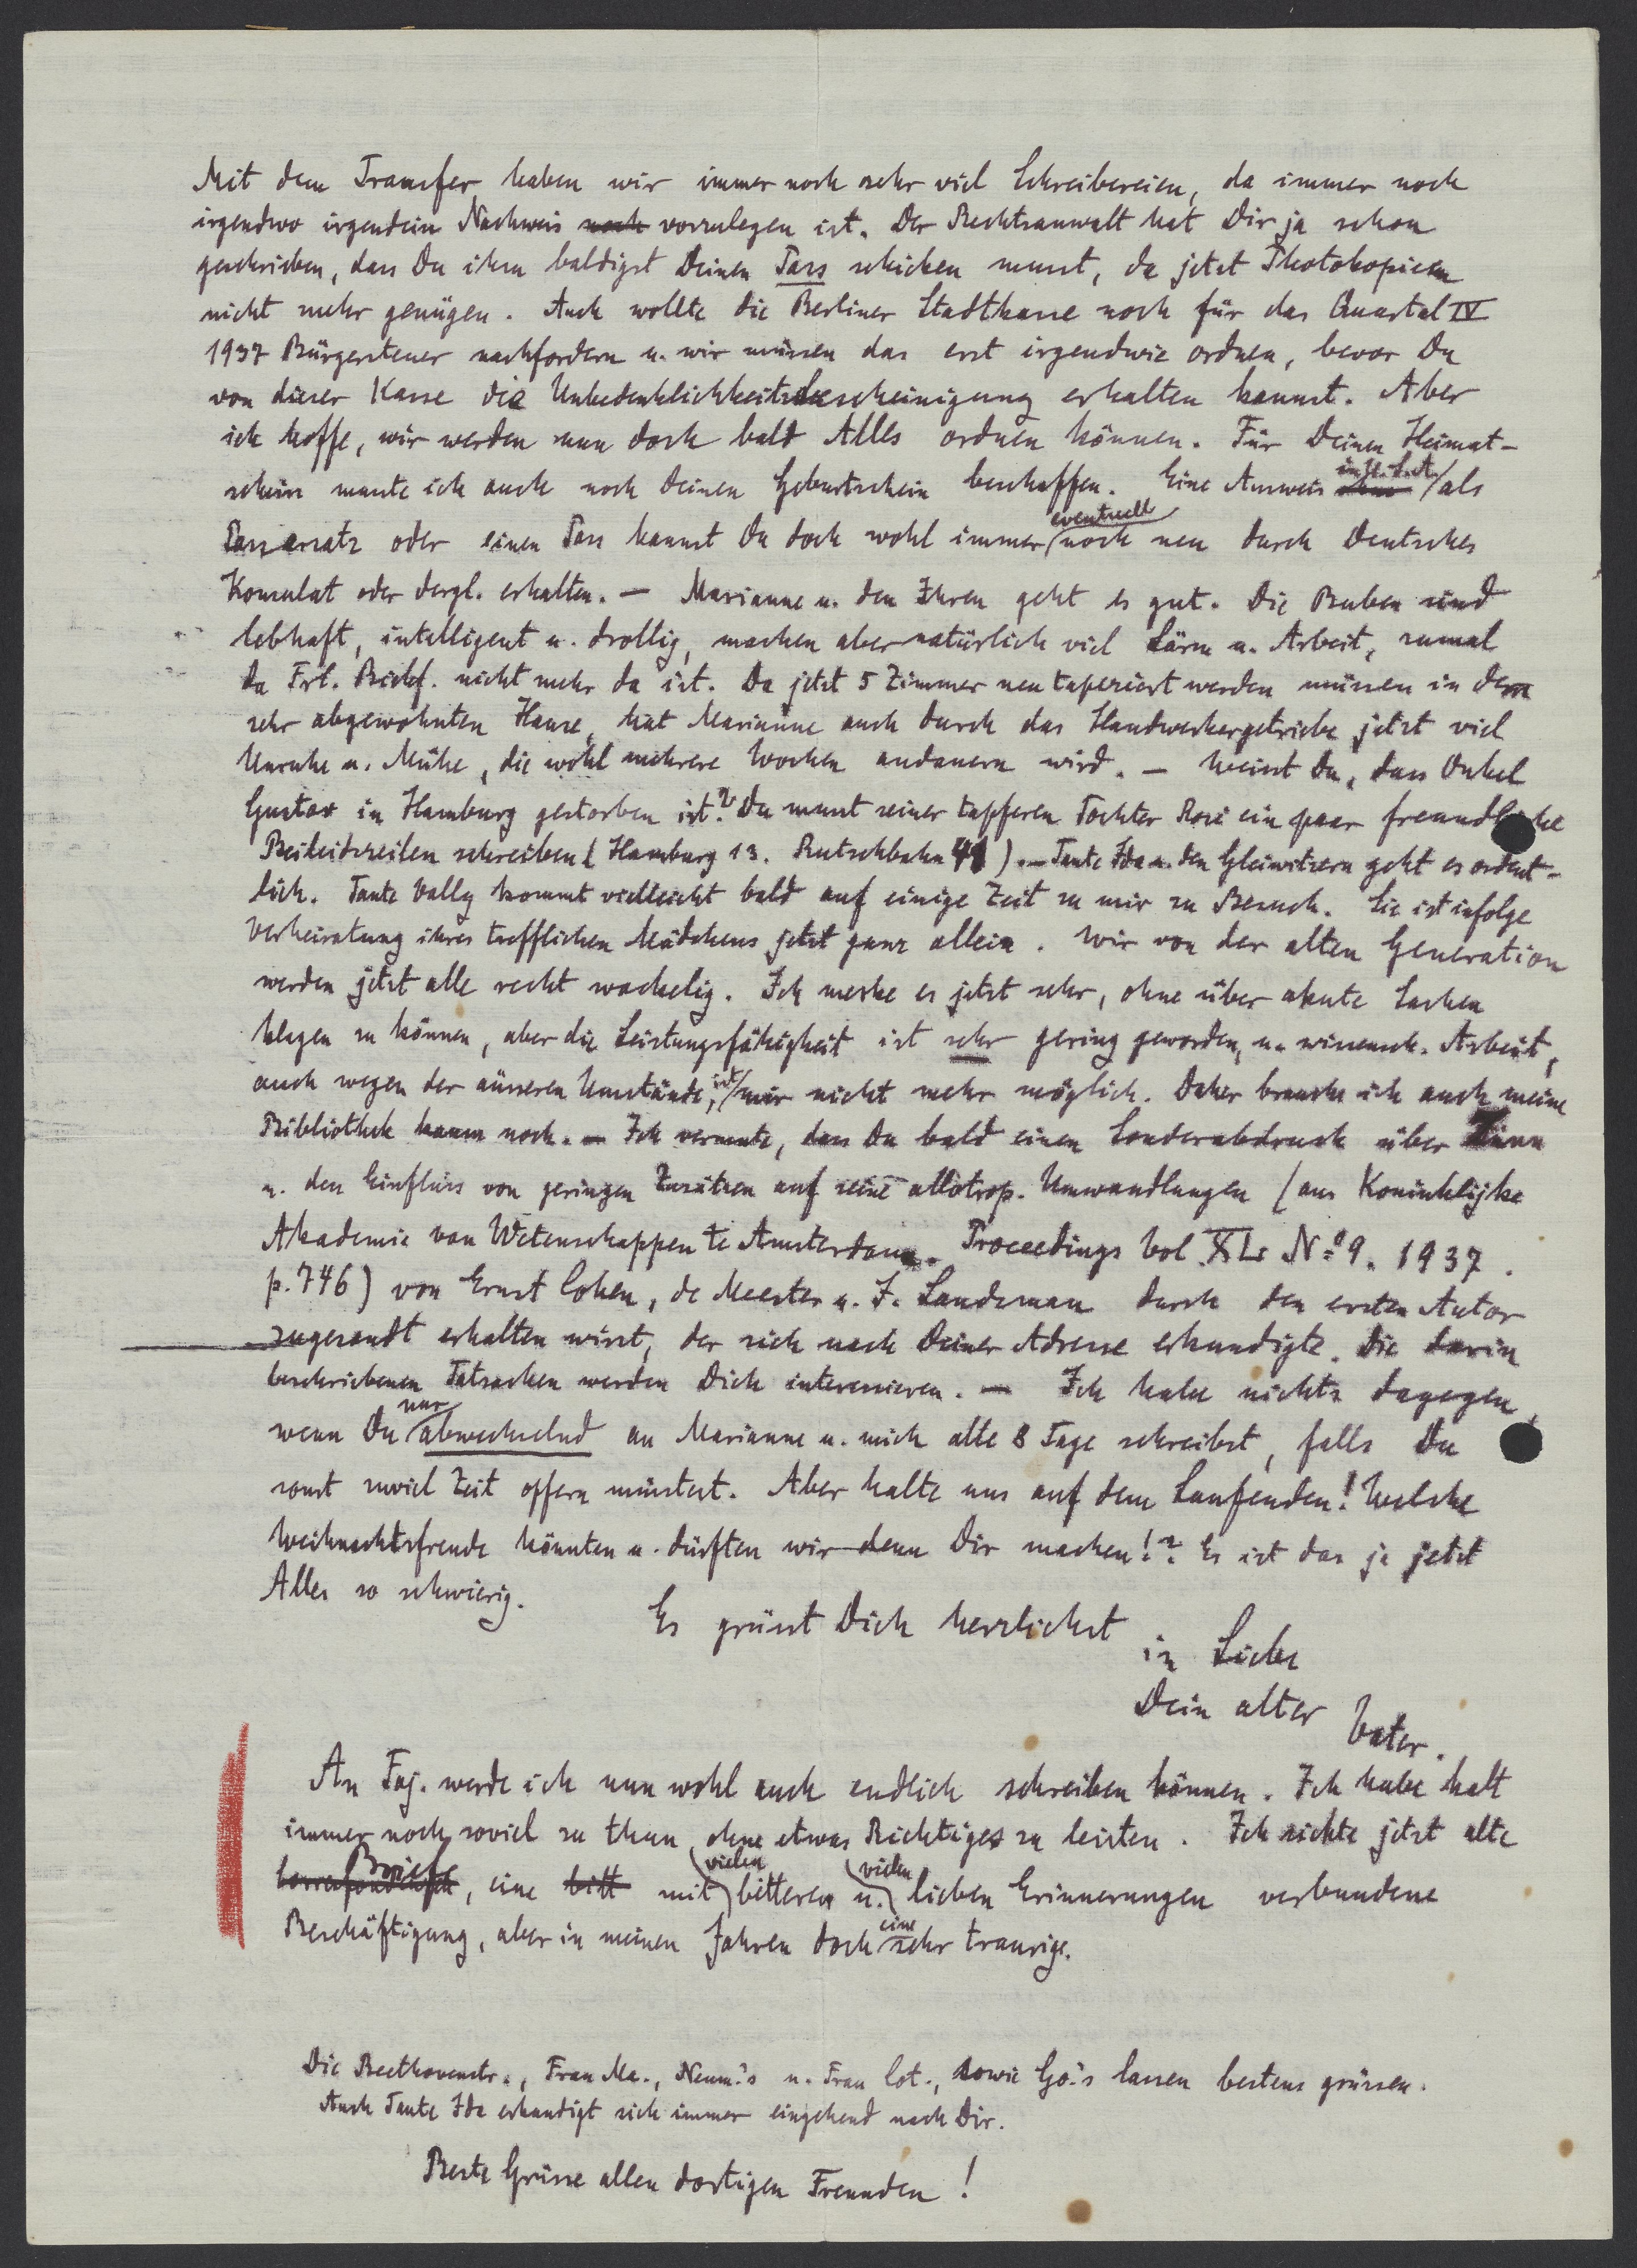 Mit dem Transfer haben wir immer noch sehr viel Schreibereien, da immer noch
irgendwo irgendein Nachweis noch vorzulegen ist. Der Rechtsanwalt hat Dir ja schon
geschrieben, dass Du ihm baldigst Deinen Pass schicken musst, da jetzt Photokopieen
nicht mehr genügen. Auch wollte die Berliner Stadtkasse noch für das Quartal IV
1937 Bürgersteuer nachfordern u. wir müssen das erst irgendwie ordnen, bevor Du
von dieser Kasse die Unbedenklichkeitsbescheinigung erhalten kannst. Aber
ich hoffe, wir werden nun doch bald Alles ordnen können. Für Deinen Heimat-
schein musste ich auch noch Deinen Geburtschein beschaffen. Eine Ausweis als
Passersatz oder einen Pass kannst Du doch wohl immer eventuell noch neu durch Deutsches
Konsulat oder dergl. erhalten. – Marianne u. den Ihren geht es gut. Die Buben sind
lebhaft, intelligent u. drollig, machen aber natürlich viel Lärm u. Arbeit, zumal
da Frl. Bickf. nicht mehr da ist. Da jetzt 5 Zimmer neu tapeziert werden müssen in dem
sehr abgewohnten Hause, hat Marianne auch durch das Handwerkergetriebe jetzt viel
Unruhe u. Mühe, die wohl mehrere Wochen andauern wird. – Weisst Du, dass Onkel
Gustav in Hamburg gestorben ist? Du musst seiner tapferen Tochter Rose ein paar freundliche
Beileidszeilen schreiben (Hamburg 13. Rutschbahn 41). – Tante Ida u. den Gleiwitzern geht es ordent-
lich. Tante Vally kommt vielleicht bald auf einige Zeit zu mir zu Besuch. Sie ist infolge
Verheiratung ihres trefflichen Mädchens jetzt ganz allein. Wir von der alten Generation
werden jetzt alle recht wackelig. Ich merke es jetzt sehr, ohne über akute Sachen
klagen zu können, aber die Leistungsfähigkeit ist sehr gering geworden, u. wissensch. Arbeit,
auch wegen der äusseren Umstände, ist mir nicht mehr möglich. Daher brauche ich auch meine
Bibliothek kaum noch. – Ich vermute, dass Du bald einen Sonderabdruck über Zinn
u. den Einfluss von geringen Zusätzen auf seine allotrop. Umwandlungen (aus Koninklijke
Akademie van Wetenschappen te Amsterdam. Proceedings Vol. XL No 9. 1937.
p. 746) von Ernst Cohen, de Meester u. J. Landsman durch den ersten Autor
zugesandt erhalten wirst, der sich nach Deiner Adresse erkundigte. Die darin
beschriebenen Tatsachen werden Dich interessieren. – Ich habe nichts dagegen,
wenn Du nur abwechselnd an Marianne u. mich alle 8 Tage schreibst, falls Du
sonst zuviel Zeit opfern müsstest. Aber halte uns auf dem Laufenden! Welche
Weihnachtsfreude könnten u. dürften wir denn Dir machen!? Es ist das ja jetzt
Alles so schwierig.
Es grüsst Dich herzlichst
in Liebe
Dein alter
Vater.
An Faj. werde ich nun wohl auch endlich schreiben können. Ich habe halt
immer noch soviel zu thun, ohne etwas Richtiges zu leisten. Ich sichte jetzt alte
Briefe, eine bitt mit vielen bitteren u. vielen lieben Erinnerungen verbundene
Beschäftigung, aber in meinen Jahren doch eine sehr traurige.
Die Beethovenstr., Frau Ma., Neum.'s u. Frau Cot., sowie Gö.'s lassen bestens grüssen.
Auch Tante Ida erkundigt sich immer eingehend nach Dir.
Beste Grüsse allen dortigen Freunden!